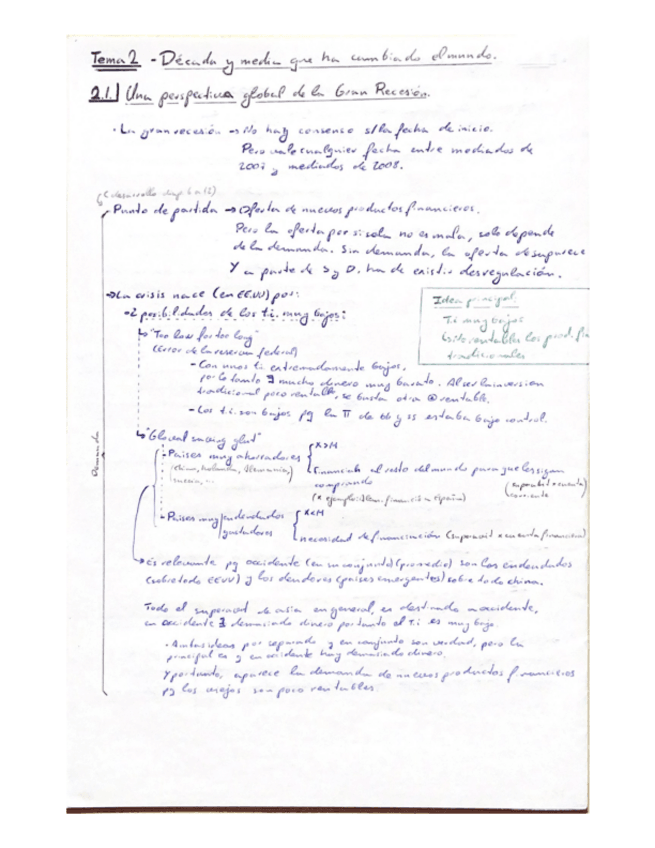 Tema 2 - Década y media que ha cambiado el mundo.
2.1. Una perspectiva global de la Gran Recesión.
· La gran recesión → No hay consenso s/ la fecha de inicio.
Pero vale cualquier fecha entre mediados de
2007 y mediados de 2008.
Punto de partida → Oferta de nuevos productos financieros.
Pero la oferta por si sola no es mala, solo depende
de la demanda. Sin demanda, la oferta desaparece
Y a parte de S y D. ha de existir desregulación.
→ La crisis nace (en EEUU) por:
→ 2 posibilidades de los t.i. muy bajos:
Idea principal:
T.i muy bajos
rentables los prod. fin
tradicionales
↳ "Too low for too long"
(error de la reserva federal)
- Con unos ti extremadamente bajos,
por lo tanto ∃ mucho dinero muy barato. Al ser la inversión
tradicional poco rentable, se busca otra ⊕ rentable.
- Los t.i. son bajos pq la π de bb y ss estaba bajo control.
Demanda
↳ "Global saving glut"
- Paises muy ahorradores { X>M
(china, holanda, Alemania,
suecia, ...
Financian al resto del mundo para que les sigan
comprando
(x ejemplo: Alem. financió a España)
(superavit x cuenta
corriente
- Paises muy endeudados { X<M
gastadores
necesidad de financiación (superavit x cuenta financiera)
→ Es relevante pq occidente (en su conjunto) (promedio) son los endeudados
(sobretodo EEUU) y los deudores (paises emergentes) sobre todo china.
Todo el superavit de asia en general, es destinado a occidente,
en occidente ∃ demasiado dinero por tanto el t.i es muy bajo.
· Ambas ideas por separado y en conjunto son verdad, pero la
principal es q en occidente hay demasiado dinero.
Y por tanto, aparece la demanda de nuevos productos financieros
pq los viejos son poco rentables.